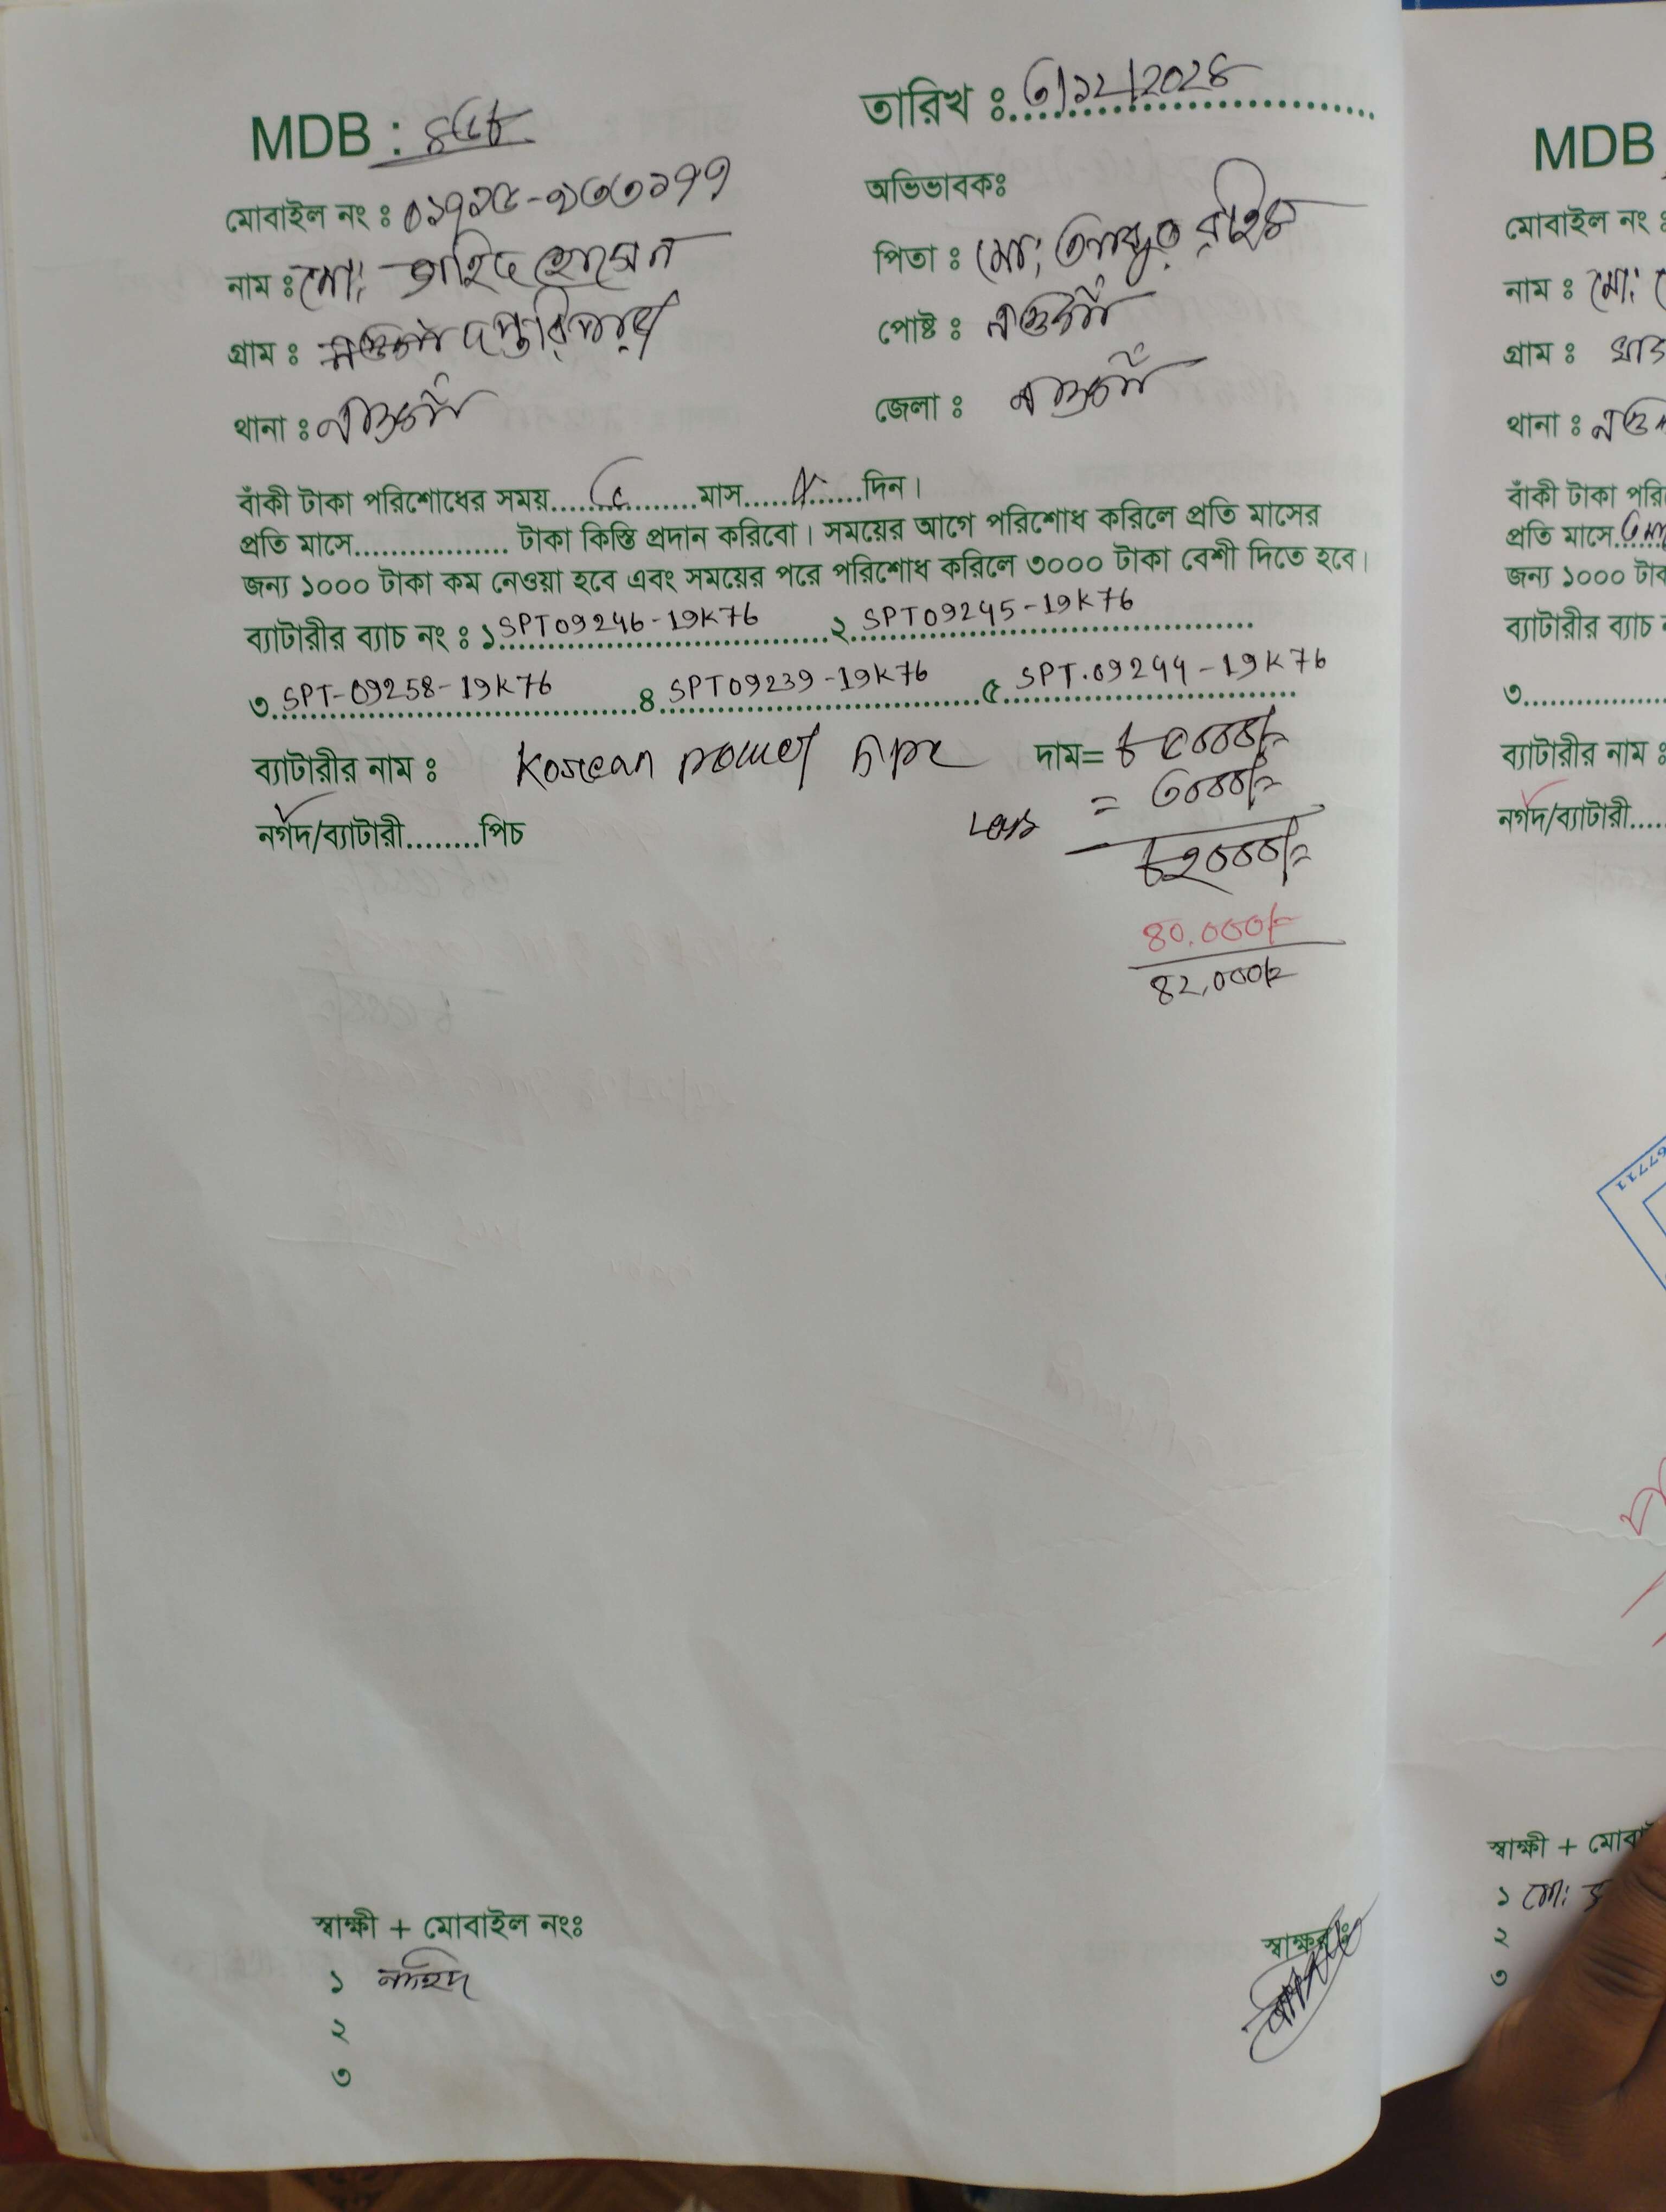 MDB : ৪৫৮
তারিখ ঃ ৩/১২/2024
মোবাইল নং ঃ
অভিভাবকঃ
নাম ঃ মো: জাহিদ হোসেন
পিতা ঃ মো:
গ্রাম ঃ
পোষ্ট ঃ নওগাঁ
থানা ঃ নওগাঁ
জেলা ঃ নওগাঁ
বাঁকী টাকা পরিশোধের সময়.....৫.....মাস..........দিন।
প্রতি মাসে................. টাকা কিস্তি প্রদান করিবো। সময়ের আগে পরিশোধ করিলে প্রতি মাসের
জন্য ১০০০ টাকা কম নেওয়া হবে এবং সময়ের পরে পরিশোধ করিলে ৩০০০ টাকা বেশী দিতে হবে।
ব্যাটারীর ব্যাচ নং ঃ ১ SPT09246-19K76 ২ SPT09245-19K76
৩ SPT-09258-19K76 ৪ SPT09239-19K76 ৫ SPT.09244-19K76
ব্যাটারীর নাম ঃ Korean power ৫ pc দাম= ৮৫০০০/=
Less = ৩০০০/=
৮২০০০/=
নগদ/ব্যাটারী........পিচ
৪০,০০০/=
৪২,০০০/=
স্বাক্ষী + মোবাইল নংঃ
স্বাক্ষর ঃ
১ নাহিদ
২
৩
MDB
মোবাইল নং ঃ
নাম ঃ মো:
গ্রাম ঃ
থানা ঃ
বাঁকী টাকা পরি
প্রতি মাসে
জন্য ১০০০ টাক
ব্যাটারীর ব্যাচ
৩
ব্যাটারীর নাম ঃ
নগদ/ব্যাটারী....
67711
স্বাক্ষী + মোবা
১ মো:
২
৩